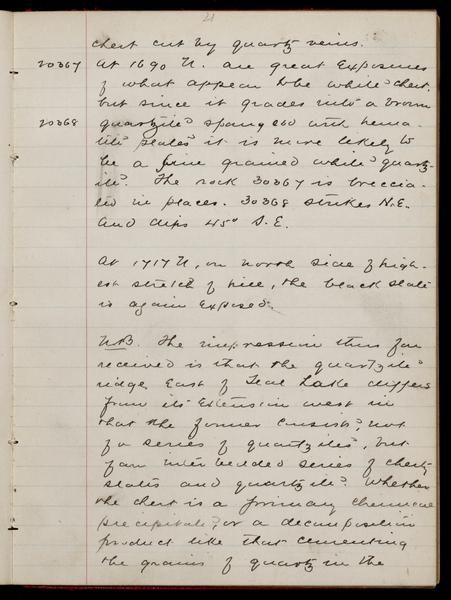 21
chert cut by quartz veins.
30367 At 1690 N. are great exposures
of what appear to be white chert,
but since it grades into a brown
30368 quartzite spangled with hema-
tite scales it is more likely to
be a fine grained white quartz-
ite. The rock 30367 is breccia-
ted in places. 30368 strikes N.E.
and dips 45° S.E.
At 1717 N, on north side of high-
est stretch of hill, the black slate
is again exposed.
N.B. The impression thus far
received is that the quartzite
ridge East of Teal Lake differs
from its extension west in
that the former consists, not
of a series of quartzites, but
of an interbedded series of chert,
slates and quartzite. Whether
the chert is a primary chemical
precipitate, or a decomposition
product like that cementing
the grains of quartz in the